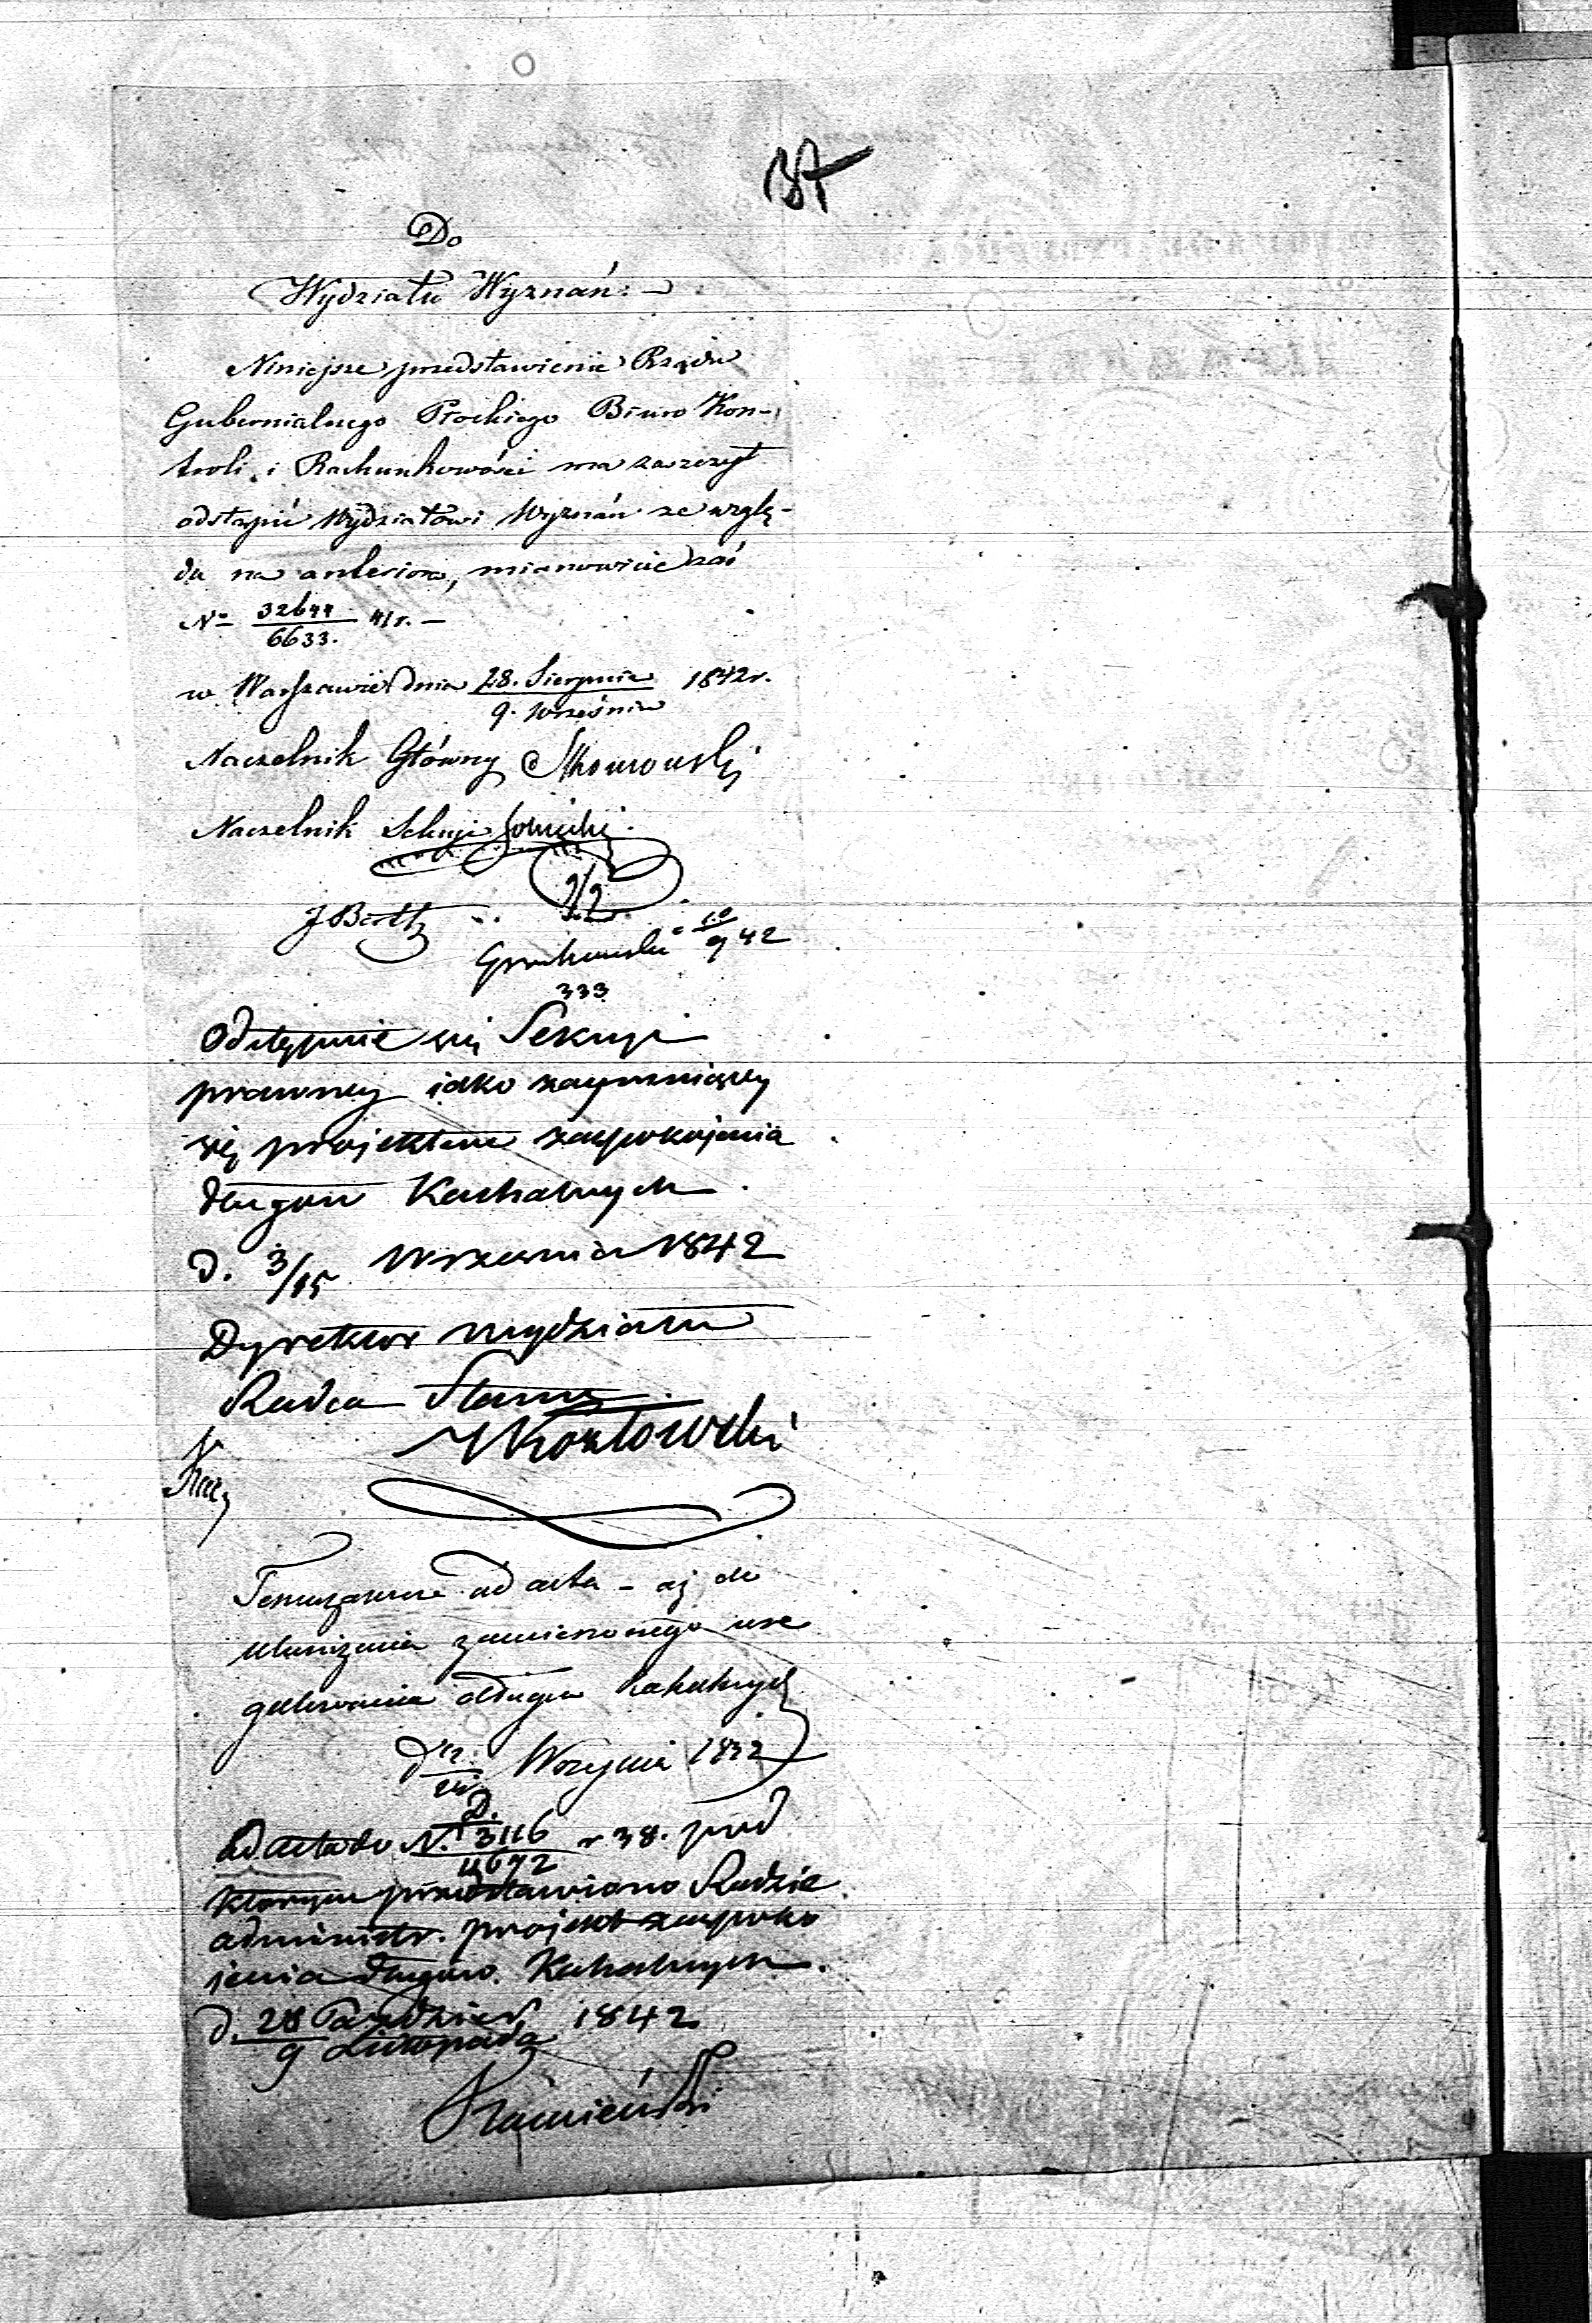 37
Do
Wydziału Wyznań. —
Niniejsze przedstawienie Rządu
Gubernialnego Płockiego Biuro Kon-
troli i Rachunkowości ma zaszczyt
odstąpić Wydziałowi Wyznań ze wzglę-
du na anteriora, mianowicie zaś
No 32644/6633. 41 r. —
w Warszawie dnia 28. Sierpnia/9. Września 1842 r.
Naczelnik Główny
Naczelnik Sekcyi
9/9
10/9 42
333
Odstępuie się Sekcyi
prawney jako zaymuiącey
się projektem zaspokojenia
długów Kachalnych.
d. 3/15 Września 1842
Dyrektor Wydziału
Radca Stanu
Kozłowski
ad acta – aż do
zamierzonego ure
gulowania długów kahalnych
Ad acta do N. D. 3116/4672 r 38. pod
którym przedstawiono Radzie
administr. projekt zaspoko
jenia długów. Kahalnych.
d. 28 Paździer/9 Listopada 1842
Kamieński